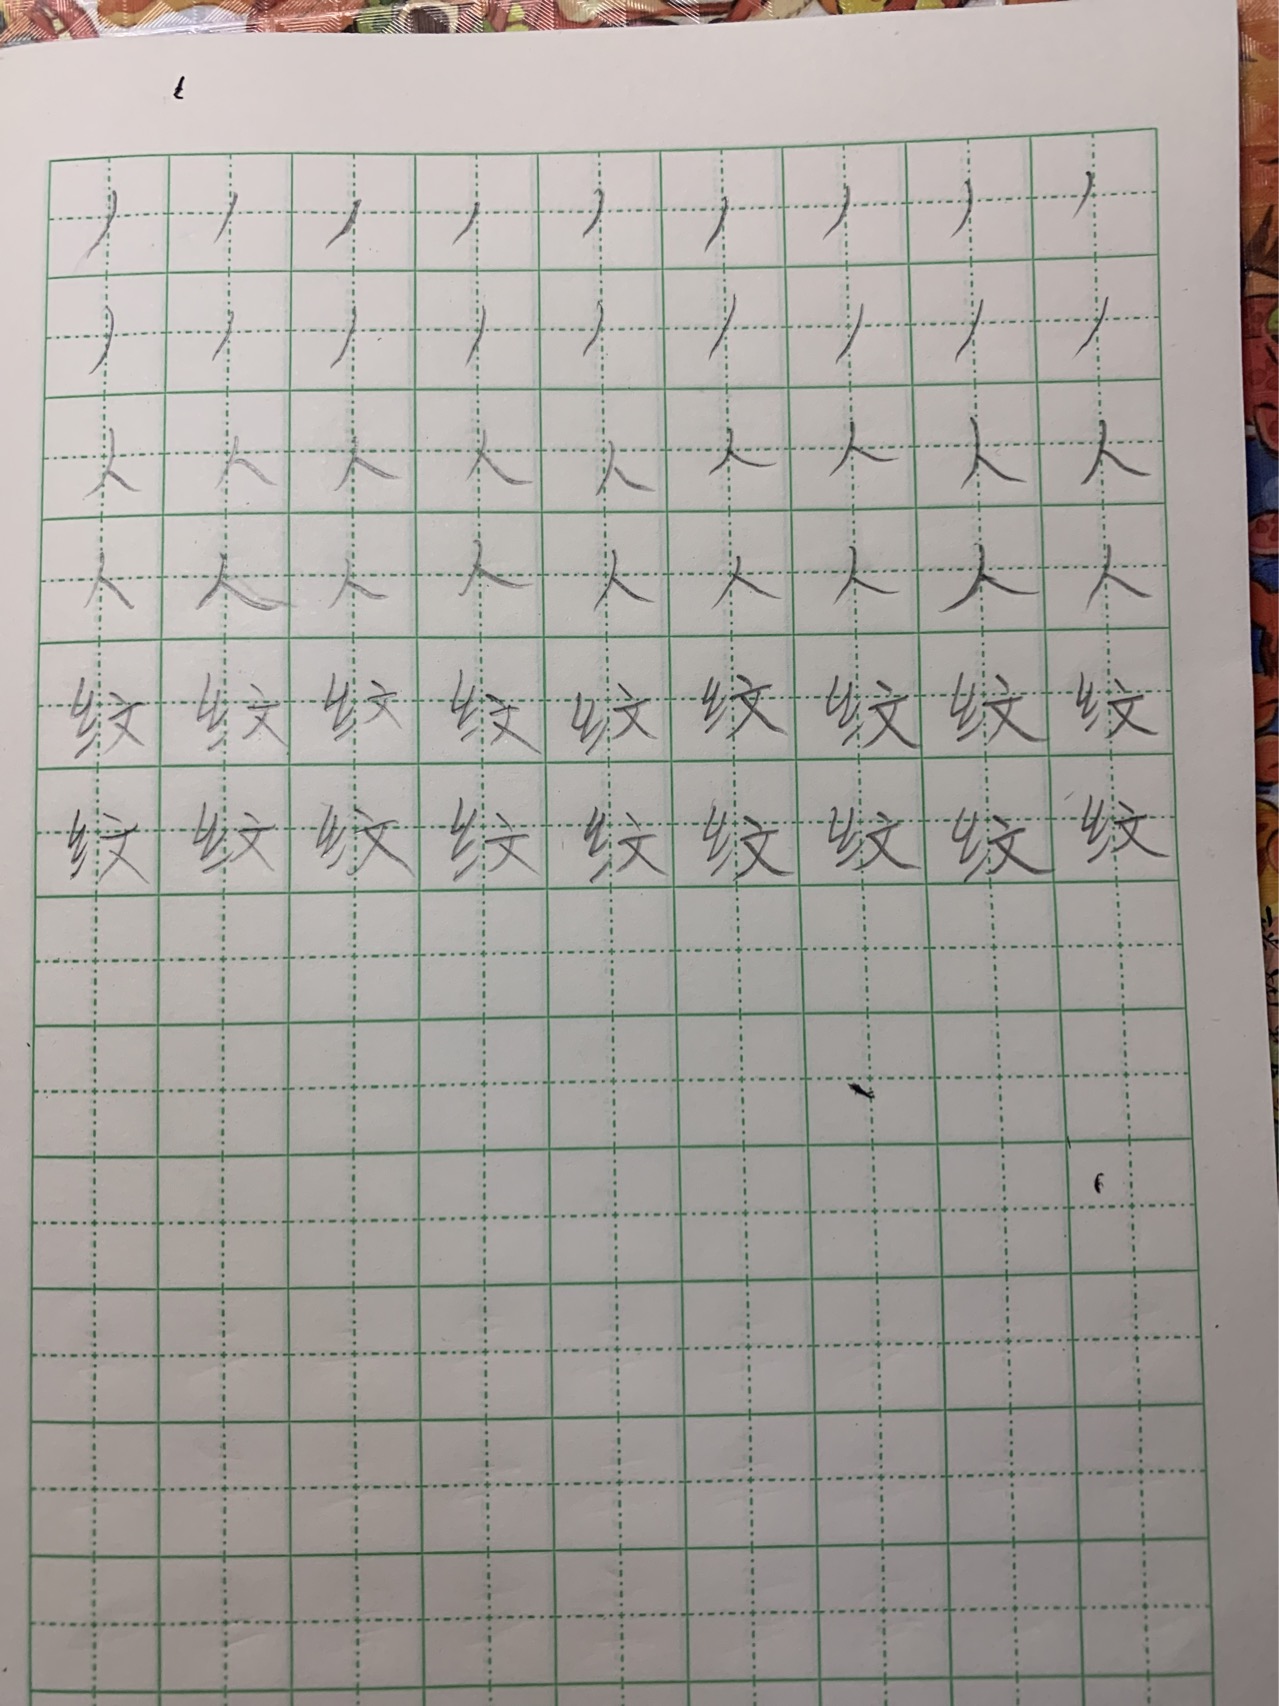 丿丿丿丿丿丿丿丿丿
丿丿丿丿丿丿丿丿丿
人人人人人人人人人
人人人人人人人人人
纹纹纹纹纹纹纹纹纹
纹纹纹纹纹纹纹纹纹